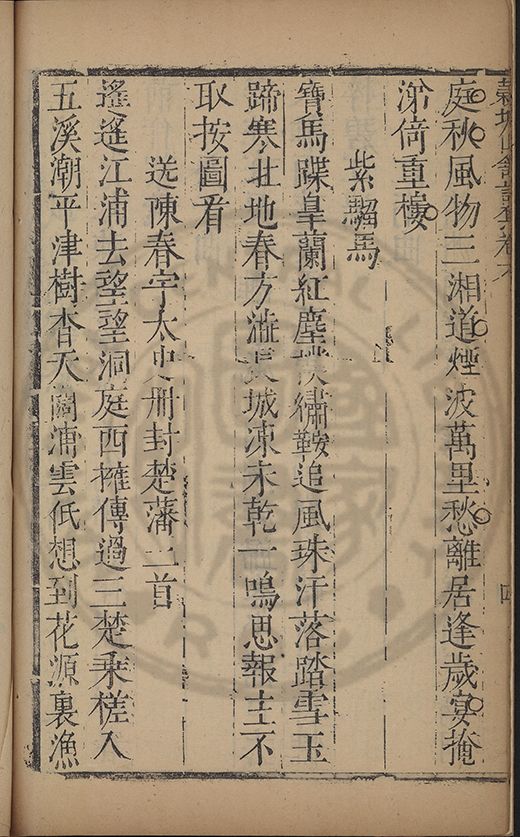 穀城山舘詩集卷六
四
庭秋風物三湘道煙波萬里愁離居逢歲宴掩
涕倚重樓
紫騮馬
寶馬蹀皐蘭紅塵繡鞍追風珠汗落踏雪玉
蹄寒壯地春方澁長城凍未乾一鳴思報主不
取按圖看
送陳春宇太史冊封楚藩二首
遙遙江浦去望望洞庭西擁傳過三楚乗槎入
五溪潮平津樹杳天闊浦雲低想到花源裏漁